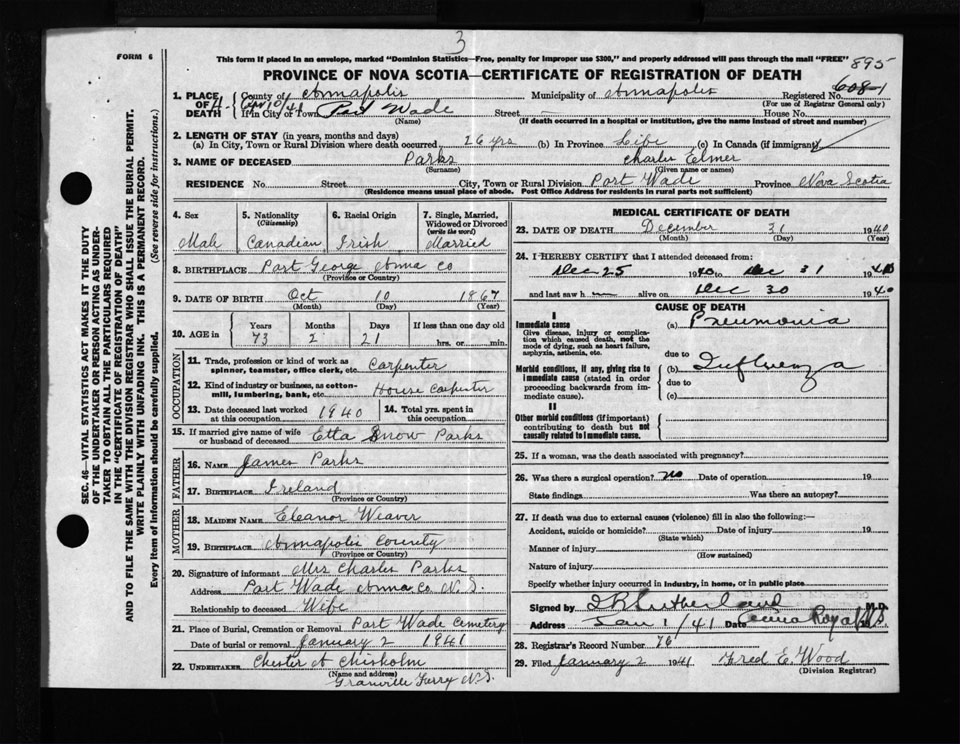 3
FORM 6
This form if placed in an envelope, marked "Dominion Statistics—Free, penalty for improper use $300," and properly addressed will pass through the mail "FREE" 895
PROVINCE OF NOVA SCOTIA—CERTIFICATE OF REGISTRATION OF DEATH
1. PLACE OF DEATH County of Annapolis Municipality of Annapolis Registered No. 608-1
(For use of Registrar General only)
If in City or Town Port Wade Street House No.
(Name) (If death occurred in a hospital or institution, give the name instead of street and number)
2. LENGTH OF STAY (in years, months and days)
(a) In City, Town or Rural Division where death occurred 26 yrs (b) In Province Life (c) In Canada (if immigrant)
3. NAME OF DECEASED Parks Charles Elmer
(Surname) (Given name or names)
RESIDENCE No. Street City, Town or Rural Division Port Wade Province Nova Scotia
(Residence means usual place of abode. Post Office Address for residents in rural parts not sufficient)
4. Sex
Male
5. Nationality
(Citizenship)
Canadian
6. Racial Origin
Irish
7. Single, Married, Widowed or Divorced
(write the word)
Married
8. BIRTHPLACE Port George Anna Co
(Province or Country)
9. DATE OF BIRTH Oct 10 1867
(Month) (Day) (Year)
10. AGE in Years Months Days If less than one day old
73 2 21 hrs. or min.
OCCUPATION
11. Trade, profession or kind of work as
spinner, teamster, office clerk, etc. Carpenter
12. Kind of industry or business, as cotton-
mill, lumbering, bank, etc. House Carpenter
13. Date deceased last worked
at this occupation 1940
14. Total yrs. spent in
this occupation
15. If married give name of wife
or husband of deceased Etta Snow Parks
FATHER
16. Name James Parks
17. Birthplace Ireland
(Province or Country)
MOTHER
18. Maiden Name Eleanor Weaver
19. Birthplace Annapolis County
(Province or Country)
20. Signature of informant Mrs Charles Parks
Address Port Wade Anna Co N.S.
Relationship to deceased Wife
21. Place of Burial, Cremation or Removal Port Wade Cemetery
Date of burial or removal January 2 1941
22. Undertaker Chester A Chisholm
(Name and address)
Granville Ferry N.S.
MEDICAL CERTIFICATE OF DEATH
23. DATE OF DEATH December 31 1940
(Month) (Day) (Year)
24. I HEREBY CERTIFY that I attended deceased from:
Dec 25 1940 to Dec 31 1940
and last saw h alive on Dec 30 1940
CAUSE OF DEATH
I
Immediate cause
Give disease, injury or complica-
tion which caused death, not the
mode of dying, such as heart failure,
asphyxia, asthenia, etc.
(a) Pneumonia
due to
Morbid conditions, if any, giving rise to
immediate cause (stated in order
proceeding backwards from im-
mediate cause).
(b) Influenza
due to
(c)
II
Other morbid conditions (if important)
contributing to death but not
causally related to immediate cause.
25. If a woman, was the death associated with pregnancy?
26. Was there a surgical operation? no Date of operation 19
State findings Was there an autopsy?
27. If death was due to external causes (violence) fill in also the following:—
Accident, suicide or homicide? Date of injury 19
(State which)
Manner of injury
(How sustained)
Nature of injury
Specify whether injury occurred in industry, in home, or in public place
Signed by Sutherland M.D.
Address Jan 1/41 Date
28. Registrar's Record Number 76
29. Filed January 2 1941 Fred E. Wood
(Division Registrar)
SEC. 46—VITAL STATISTICS ACT MAKES IT THE DUTY
OF THE UNDERTAKER OR PERSON ACTING AS UNDER-
TAKER TO OBTAIN ALL THE PARTICULARS REQUIRED
IN THE "CERTIFICATE OF REGISTRATION OF DEATH"
AND TO FILE THE SAME WITH THE DIVISION REGISTRAR WHO SHALL ISSUE THE BURIAL PERMIT.
WRITE PLAINLY WITH UNFADING INK. THIS IS A PERMANENT RECORD.
Every item of information should be carefully supplied. (See reverse side for instructions.)